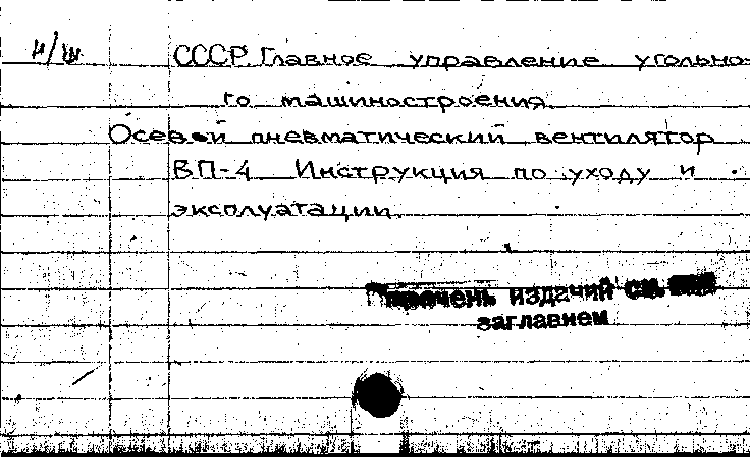 н/ш СССР. Главное управление угольно-
го машиностроения.
Осевой пневматический вентилятор
ВП-4 Инструкция по уходу и
эксплуатации.
Перечень изданий см. под
заглавием